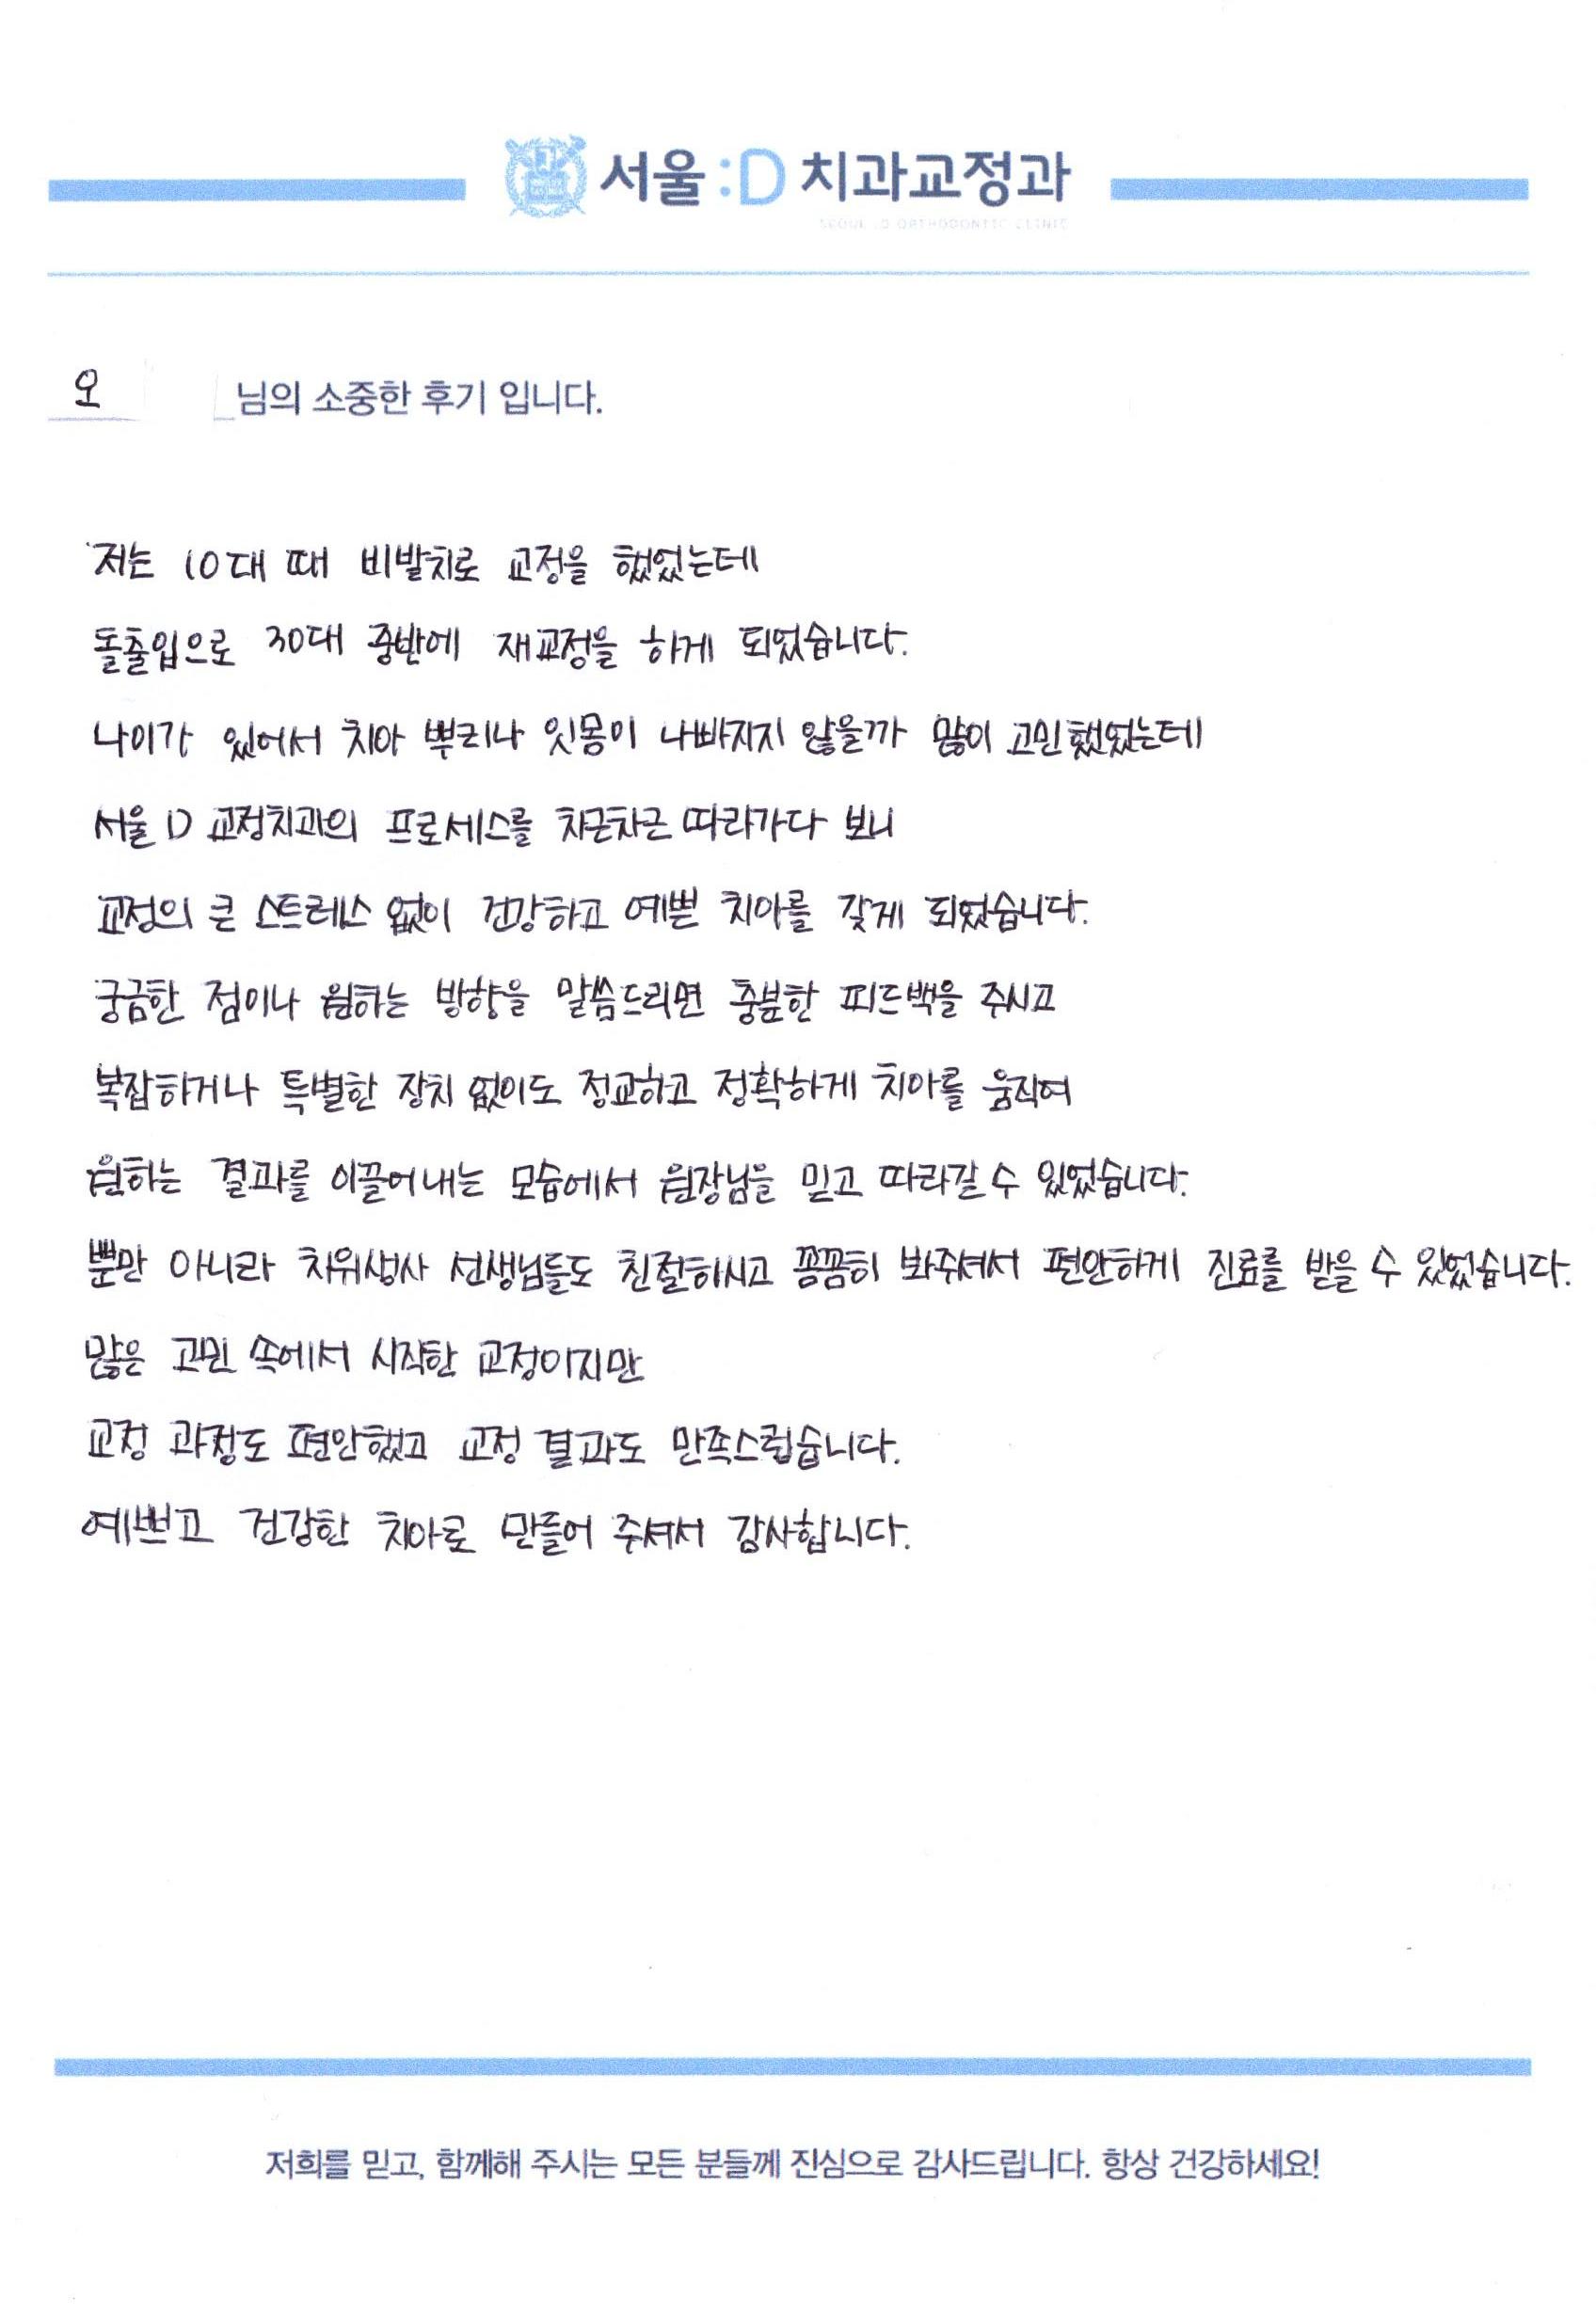 서울:D 치과교정과
SEOUL :D ORTHODONTIC CLINIC
오 님의 소중한 후기 입니다.
저는 10대 때 비발치로 교정을 했었는데
돌출입으로 30대 중반에 재교정을 하게 되었습니다.
나이가 있어서 치아 뿌리나 잇몸이 나빠지지 않을까 많이 고민했었는데
서울 D 교정치과의 프로세스를 차근차근 따라가다 보니
교정의 큰 스트레스 없이 건강하고 예쁜 치아를 갖게 되었습니다.
궁금한 점이나 원하는 방향을 말씀드리면 충분한 피드백을 주시고
복잡하거나 특별한 장치 없이도 정교하고 정확하게 치아를 움직여
원하는 결과를 이끌어내는 모습에서 원장님을 믿고 따라갈 수 있었습니다.
뿐만 아니라 치위생사 선생님들도 친절하시고 꼼꼼히 봐주셔서 편안하게 진료를 받을 수 있었습니다.
많은 고민 속에서 시작한 교정이지만
교정 과정도 편안했고 교정 결과도 만족스럽습니다.
예쁘고 건강한 치아로 만들어 주셔서 감사합니다.
저희를 믿고, 함께해 주시는 모든 분들께 진심으로 감사드립니다. 항상 건강하세요!